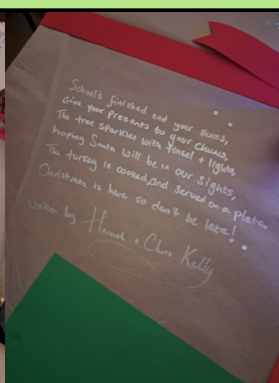 School's finished end your stress,
Give your presents to your chums,
The tree sparkles with tinsel + lights,
hoping Santa will be in our sights,
The turkey is cooked and served on a plate,
Christmas is here so don't be late!
Written by Hannah + Chris Kelly